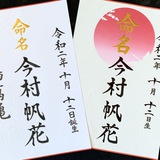 令和二年 十月 十二日誕生
命名 今村帆花
命名 今村帆花
令和二年 十月 十二日誕生